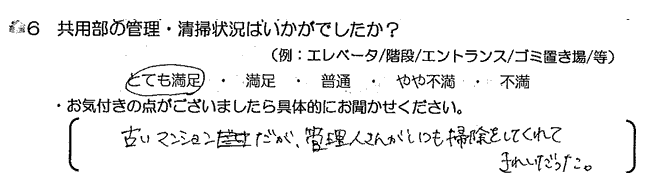 6 共用部の管理・清掃状況はいかがでしたか？
（例：エレベータ/階段/エントランス/ゴミ置き場/等）
とても満足 ・ 満足 ・ 普通 ・ やや不満 ・ 不満
・お気付きの点がございましたら具体的にお聞かせください。
古いマンションだが、管理人さんがいつも掃除をしてくれて
きれいだった。